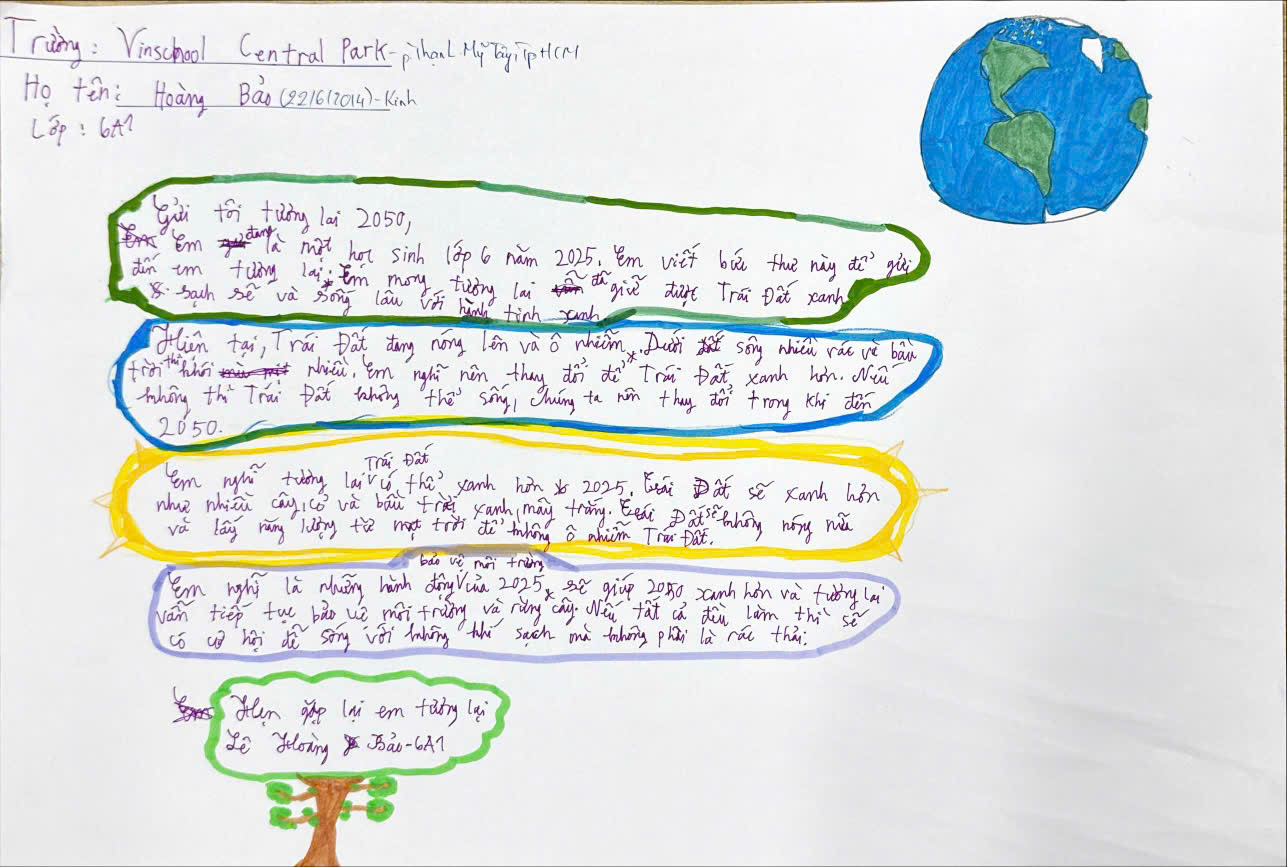 Trường: Vinschool Central Park - p. Thạnh Mỹ Tây, Tp HCM
Họ tên: Hoàng Bảo (22/6/2014) - Kinh
Lớp: 6A1
Gửi tôi tương lai 2050,
Em đang là một học sinh lớp 6 năm 2025. Em viết bức thư này để gửi
đến em tương lai. Em mong tương lai đã giữ được Trái Đất xanh
sạch sẽ và sống lâu với hành tinh xanh
Hiện tại, Trái Đất đang nóng lên và ô nhiễm. Dưới sông nhiều rác và bầu
trời thì khói nhiều. Em nghĩ nên thay đổi để Trái Đất xanh hơn. Nếu
không thì Trái Đất không thể sống, chúng ta nên thay đổi trong khi đến
2050.
Em nghĩ tương lai Trái Đất có thể xanh hơn 2025. Trái Đất sẽ xanh hơn
như nhiều cây, cỏ và bầu trời xanh, mây trắng. Trái Đất sẽ không nóng nữa
và lấy năng lượng từ mặt trời để không ô nhiễm Trái Đất.
Em nghĩ là những hành động bảo vệ môi trường của 2025 sẽ giúp 2050 xanh hơn và tương lai
vẫn tiếp tục bảo vệ môi trường và rừng cây. Nếu tất cả đều làm thì sẽ
có cơ hội để sống với không khí sạch mà không phải là rác thải.
Hẹn gặp lại em tương lại
Lê Hoàng Bảo - 6A1